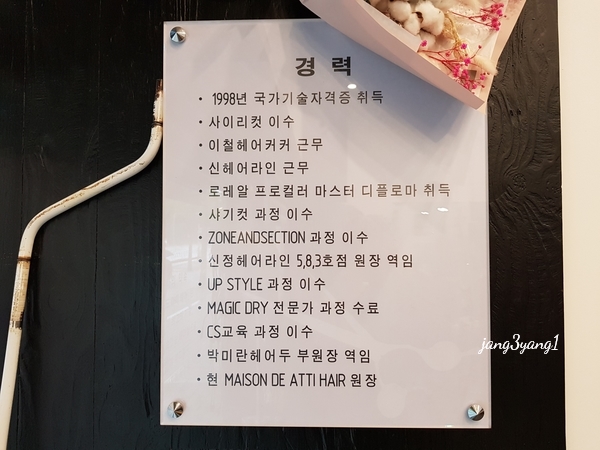 경 력
• 1998년 국가기술자격증 취득
• 사이리컷 이수
• 이철헤어커커 근무
• 신헤어라인 근무
• 로레알 프로컬러 마스터 디플로마 취득
• 샤기컷 과정 이수
• ZONEANDSECTION 과정 이수
• 신정헤어라인 5,8,3호점 원장 역임
• UP STYLE 과정 이수
• MAGIC DRY 전문가 과정 수료
• CS교육 과정 이수
• 박미란헤어두 부원장 역임
• 현 MAISON DE ATTI HAIR 원장
jang3yang1